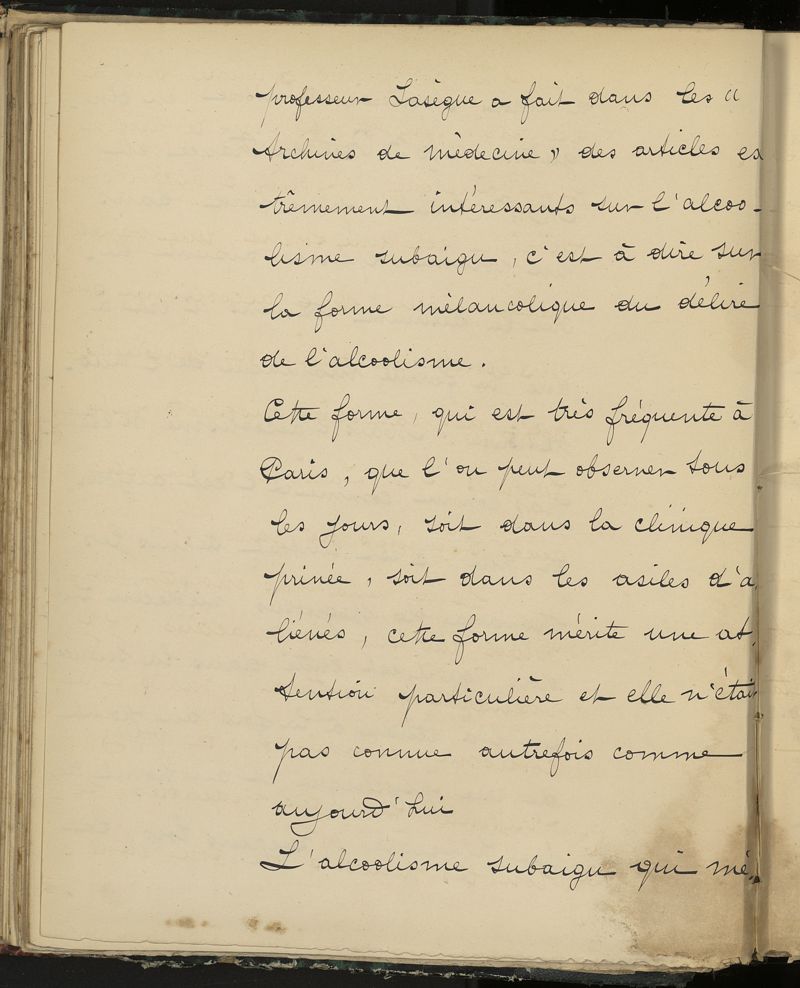 professeur Lasègue a fait dans les «
Archives de médecine » des articles ex
trêmement intéressants sur l'alcoo-
lisme subaigu, c'est à dire sur
la forme mélancolique du délire
de l'alcoolisme.
Cette forme, qui est très fréquente à
Paris, que l'on peut observer tous
les jours, soit dans la clinique
privée, soit dans les asiles d'a-
liénés, cette forme mérite une at-
tention particulière et elle n'était
pas connue autrefois comme
aujourd'hui
L'alcoolisme subaigu qui mé-